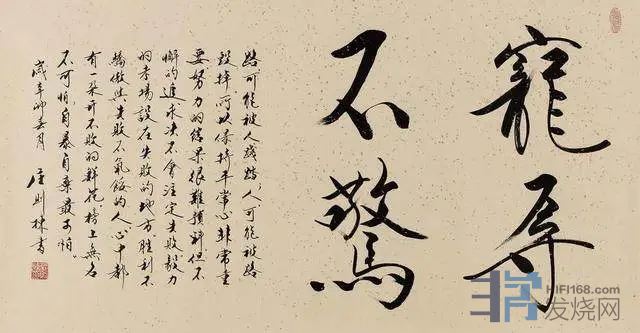 寵辱
不驚
路可能被人踐踏,人可能被路
毀掉所以保持平常心非常重
要努力的結果很難預料但不
懈的追求決不會注定失敗毅力
的考場設在失敗的地方勝利不
驕傲與失敗不氣餒的人心中都
有一朵開不敗的鮮花榜上無名
不可怕自暴自棄最可怕
歲辛卯春月 庄則棟書
HIFI168.com
发烧网